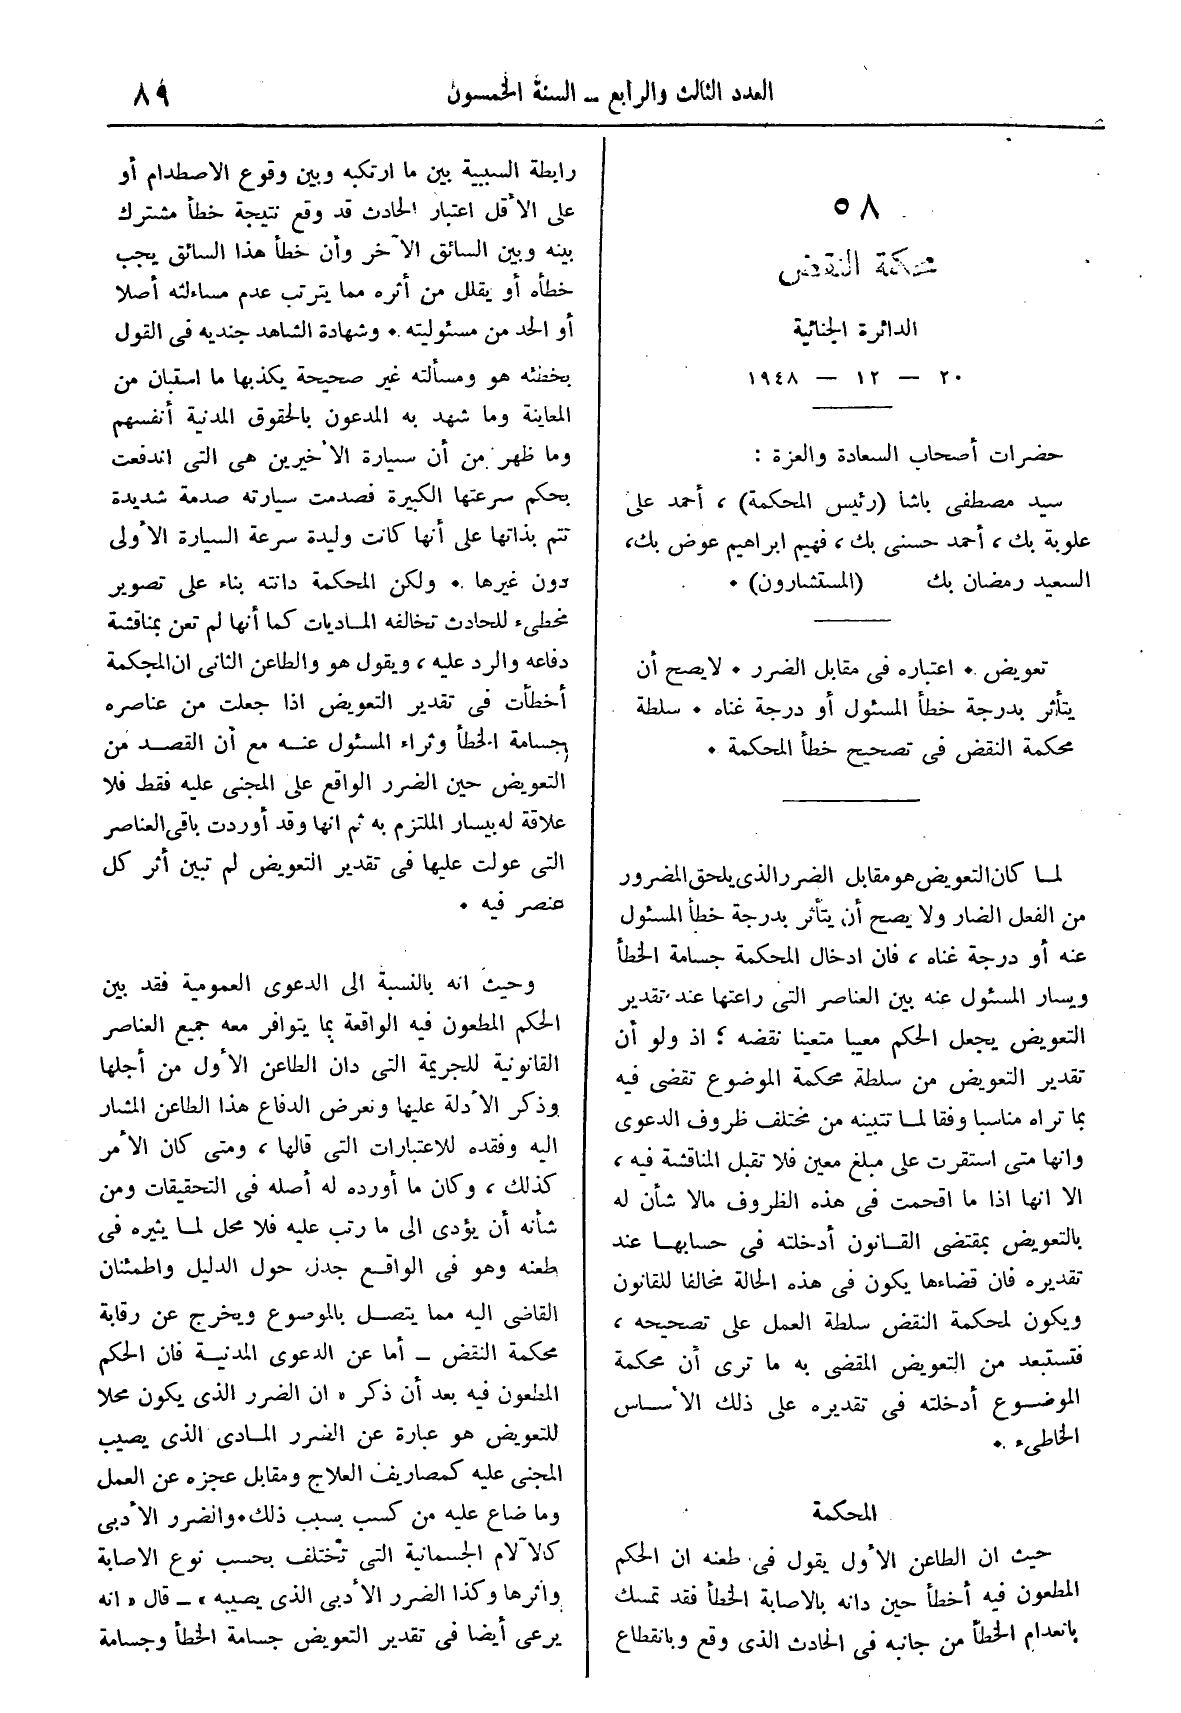 العدد الثالث والرابع ــ السنة الخمسون
٨٩
٥٨
محكمة النقض
الدائرة الجنائية
٢٠ — ١٢ — ١٩٤٨
حضرات أصحاب السعادة والعزة :
سيد مصطفى باشا (رئيس المحكمة) ، أحمد على
علوبة بك ، أحمد حسنى بك ، فهيم ابراهيم عوض بك،
السعيد رمضان بك (المستشارون) .
تعويض . اعتباره فى مقابل الضرر . لا يصح أن
يتأثر بدرجة خطأ المسئول أو درجة غناه . سلطة
محكمة النقض فى تصحيح خطأ المحكمة .
لما كان التعويض هو مقابل الضرر الذى يلحق المضرور
من الفعل الضار ولا يصح أن يتأثر بدرجة خطأ المسئول
عنه أو درجة غناه ، فان ادخال المحكمة جسامة الخطأ
ويسار المسئول عنه بين العناصر التى راعتها عند تقدير
التعويض يجعل الحكم معيبا متعينا نقضه ؛ اذ ولو أن
تقدير التعويض من سلطة محكمة الموضوع تقضى فيه
بما تراه مناسبا وفقا لما تتبينه من مختلف ظروف الدعوى
وانها متى استقرت على مبلغ معين فلا تقبل المناقشة فيه ،
الا انها اذا ما اقحمت فى هذه الظروف مالا شأن له
بالتعويض بمقتضى القانون أدخلته فى حسابها عند
تقديره فان قضاءها يكون فى هذه الحالة مخالفا للقانون
ويكون لمحكمة النقض سلطة العمل على تصحيحه ،
فتستبعد من التعويض المقضى به ما ترى أن محكمة
الموضوع أدخلته فى تقديره على ذلك الأساس
الخاطىء .
المحكمة
حيث ان الطاعن الأول يقول فى طعنه ان الحكم
المطعون فيه أخطأ حين دانه بالاصابة الخطأ فقد تمسك
بانعدام الخطأ من جانبه فى الحادث الذى وقع وبانقطاع
رابطة السببية بين ما ارتكبه وبين وقوع الاصطدام أو
على الأقل اعتبار الحادث قد وقع نتيجة خطأ مشترك
بينه وبين السائق الآخر وأن خطأ هذا السائق يجب
خطأه أو يقلل من أثره مما يترتب عدم مساءلته أصلا
أو الحد من مسئوليته . وشهادة الشاهد جنديه فى القول
بخطئه هو ومسألته غير صحيحة يكذبها ما استبان من
المعاينة وما شهد به المدعون بالحقوق المدنية أنفسهم
وما ظهر من أن سيارة الأخيرين هى التى اندفعت
بحكم سرعتها الكبيرة فصدمت سيارته صدمة شديدة
تتم بذاتها على أنها كانت وليدة سرعة السيارة الأولى
دون غيرها . ولكن المحكمة دانته بناء على تصوير
مخطىء للحادث تخالفه الماديات كما أنها لم تعن بمناقشة
دفاعه والرد عليه ، ويقول هو والطاعن الثانى ان المحكمة
أخطأت فى تقدير التعويض اذا جعلت من عناصره
جسامة الخطأ وثراء المسئول عنه مع أن القصد من
التعويض حين الضرر الواقع على المجنى عليه فقط فلا
علاقة له بيسار الملتزم به ثم انها وقد أوردت باقى العناصر
التى عولت عليها فى تقدير التعويض لم تبين أثر كل
عنصر فيه .
وحيث انه بالنسبة الى الدعوى العمومية فقد بين
الحكم المطعون فيه الواقعة بما يتوافر معه جميع العناصر
القانونية للجريمة التى دان الطاعن الأول من أجلها
وذكر الأدلة عليها وتعرض الدفاع هذا الطاعن المشار
اليه وفقده للاعتبارات التى قالها ، ومتى كان الأمر
كذلك ، وكان ما أورده له أصله فى التحقيقات ومن
شأنه أن يؤدى الى ما رتب عليه فلا محل لما يثيره فى
طعنه وهو فى الواقع جدل حول الدليل واطمئنان
القاضى اليه مما يتصل بالموصوع ويخرج عن رقابة
محكمة النقض ــ أما عن الدعوى المدنية فان الحكم
المطعون فيه بعد أن ذكر « ان الضرر الذى يكون محلا
للتعويض هو عبارة عن الضرر المادى الذى يصيب
المجنى عليه كمصاريف العلاج ومقابل عجزه عن العمل
وما ضاع عليه من كسب بسبب ذلك. والضرر الأدبى
كالآلام الجسمانية التى تختلف بحسب نوع الاصابة
واثرها وكذا الضرر الأدبى الذى يصيبه » ــ قال « انه
يرعى أيضا فى تقدير التعويض جسامة الخطأ وجسامة